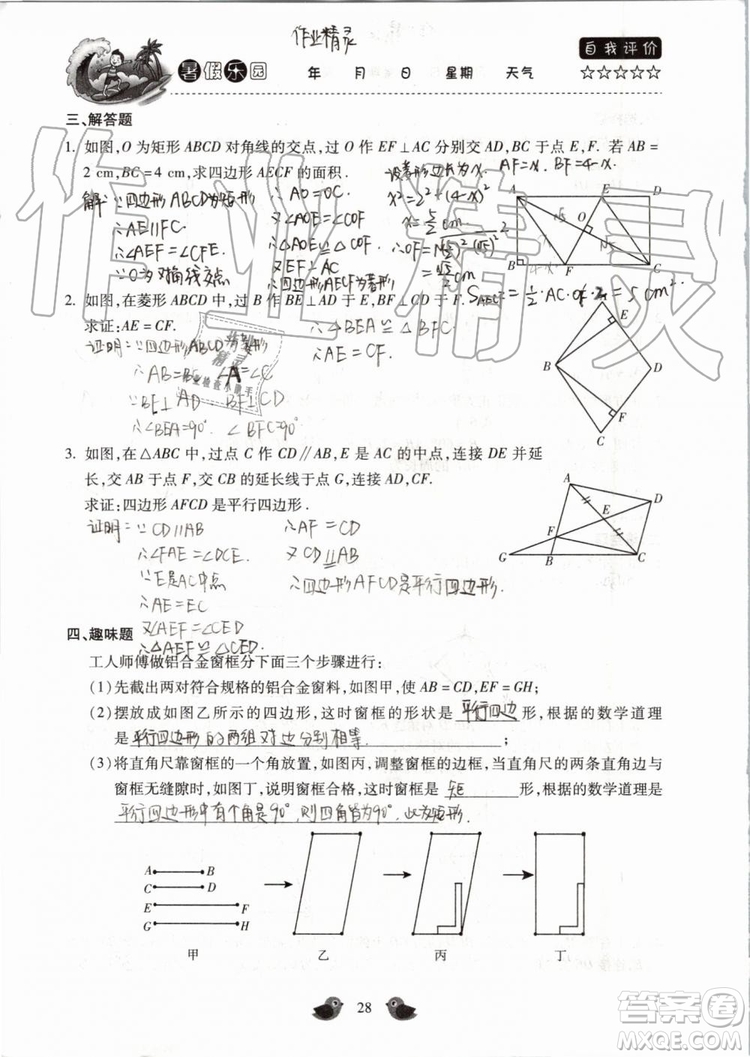 作业精灵
暑假乐园 年 月 日 星期 天气
自我评价
☆☆☆☆☆
三、解答题
1. 如图,O 为矩形 ABCD 对角线的交点,过 O 作 EF⊥AC 分别交 AD,BC 于点 E,F. 若 AB=
2 cm,BC=4 cm,求四边形 AECF 的面积.
设菱形边长为x. AF=x. BF=4-x.
解:∵四边形ABCD为矩形
∴AE∥FC
∴∠AEF=∠CFE
∵O为对角线交点
∴AO=OC.
又∠AOE=∠COF
∴△AOE≌△COF
又EF⊥AC
∴四边形AECF为菱形
x²=2²+(4-x)²
x=5/2cm
S AECF=1/2·AC·OF·2=5cm².
A E D
O
B F C
2. 如图,在菱形 ABCD 中,过 B 作 BE⊥AD 于 E,BF⊥CD 于 F.
求证:AE=CF.
证明:∵四边形ABCD为菱形
∴AB=BC ∠A=∠C
∵BE⊥AD BF⊥CD
∴∠BEA=90° ∠BFC=90°
∴△BEA≌△BFC
∴AE=CF.
A
E
B D
F
C
3. 如图,在△ABC 中,过点 C 作 CD∥AB,E 是 AC 的中点,连接 DE 并延
长,交 AB 于点 F,交 CB 的延长线于点 G,连接 AD,CF.
求证:四边形 AFCD 是平行四边形.
证明:∵CD∥AB
∴∠FAE=∠DCE.
∵E是AC中点
∴AE=EC
又∠AEF=∠CED
∴△AEF≌△CED
∴AF=CD
又CD∥AB
∴四边形AFCD是平行四边形
A
D
E
F
G B C
四、趣味题
工人师傅做铝合金窗框分下面三个步骤进行:
(1)先截出两对符合规格的铝合金窗料,如图甲,使 AB=CD,EF=GH;
(2)摆放成如图乙所示的四边形,这时窗框的形状是 平行四边 形,根据的数学道理
是 平行四边形的两组对边分别相等. ;
(3)将直角尺靠窗框的一个角放置,如图丙,调整窗框的边框,当直角尺的两条直角边与
窗框无缝隙时,如图丁,说明窗框合格,这时窗框是 矩 形,根据的数学道理是
平行四边形中有个角是90°,则四角皆为90°,此为矩形.
A B
C D
E F
G H
甲 乙 丙 丁
28
作业精灵
答案圈
MXQE.COM